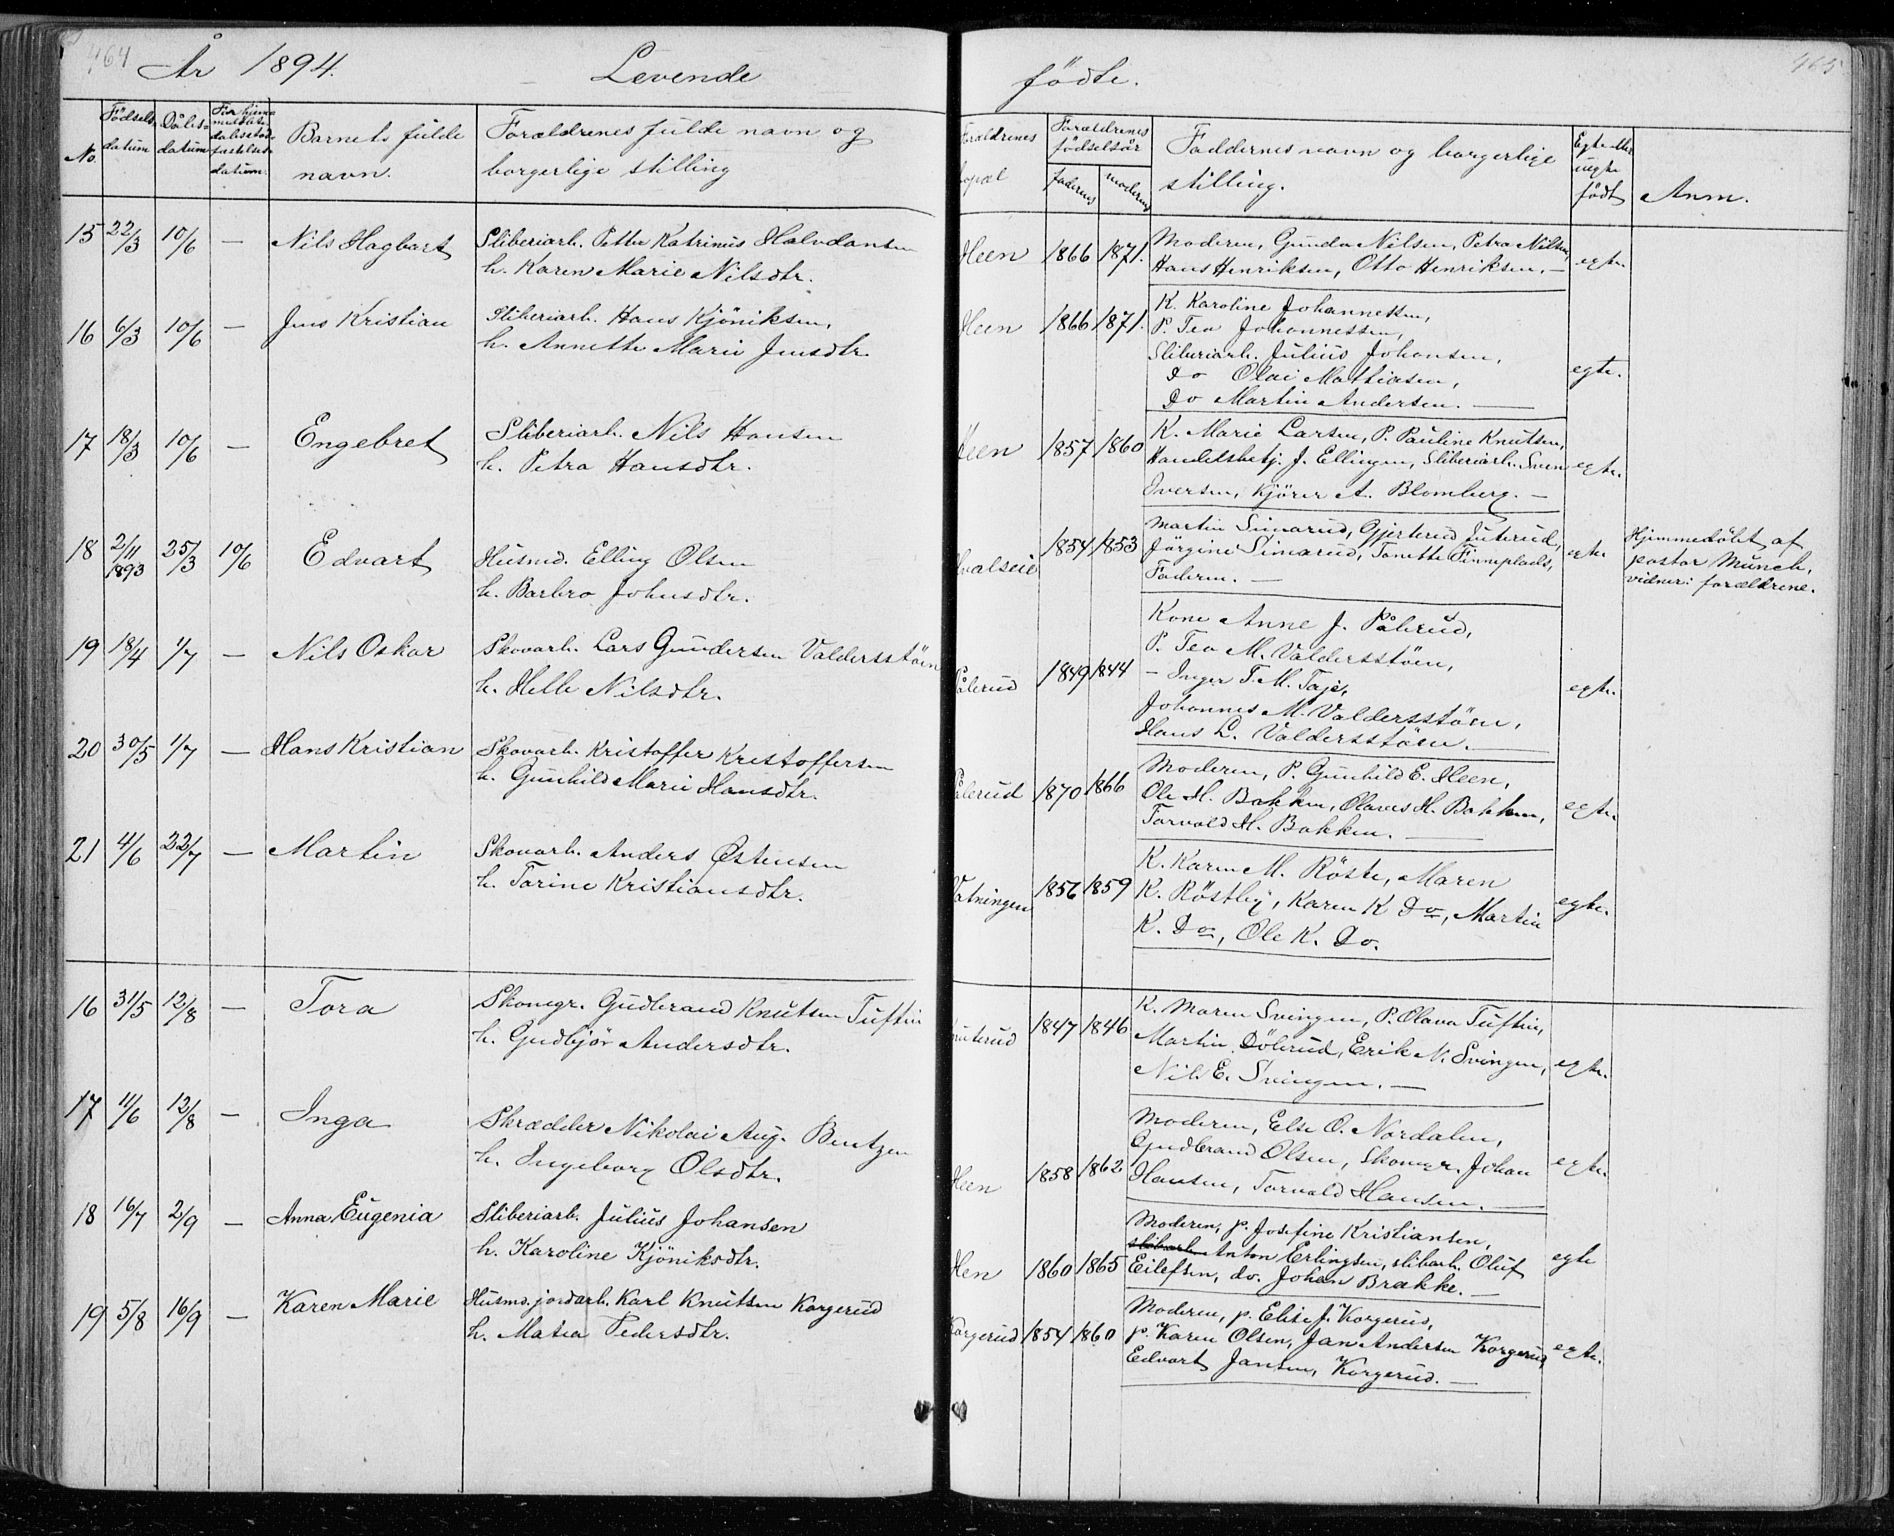 464
År 1894.
Levende
fødte.
465
No.
Fødsels-
datum
Dåbs-
datum
datum.
Barnets fulde
navn.
Forældrenes fulde navn og
borgerlige stilling
Forældrenes
bopæl
Forældrenes
fødselsår
faderens
moderens
Faddernes navn og borgerlige
stilling.
Egte eller
uegte
født
Anm.
15 22/3 10/6 — Nils Hagbart
Sliberiarb. Petter Katrinus Halvdansen
h. Karen Marie Nilsdtr.
Heen 1866 1871.
Moderen, Gunda Nilsen, Petra Nilsen,
Hans Henriksen, Otto Henriksen. —
egte.
16 6/3 10/6 — Jens Kristian
Sliberiarb. Hans Kjöniksen,
h. Annette Marie Jensdtr.
Heen 1866 1871.
K. Karoline Johannessen,
P. Tea Johannessen,
Sliberiarb. Julius Johansen,
Do Olai Mathiasen,
Do Martin Andersen. —
egte.
17 18/3 10/6 — Engebret
Sliberiarb. Nils Hansen
h. Petra Hansdtr.
Heen 1857 1860
K. Marie Larsen, P. Pauline Knutsen,
Handelsbetj. J. Ellingsen, Sliberiarb. Sven
Iversen, Kjörer A. Blomberg. —
egte.
18 2/11 1893 25/3 10/6 Edvart
Husmd. Elling Olsen
h. Barbro Johnsdtr.
Hvalseie 1854 1853
Martin Simarud, Gjertrud Juterud,
Jörgine Simarud, Tonette Finneplads,
Faderen. —
egte
Hjemmedöbt af
pastor Munch,
vidner: forældrene.
19 18/4 1/7 — Nils Oskar
Skovarb. Lars Gundersen Valdersstöen
h. Helle Nilsdtr.
Pålerud 1849 1844
Kone Anne J. Pålerud,
P. Tea M. Valdersstöen,
— Inger T. M. Taje,
Johannes M. Valdersstöen,
Hans L. Valdersstöen. —
egte.
20 30/5 1/7 — Hans Kristian
Skovarb. Kristoffer Kristoffersen
h. Gunhild Marie Hansdtr.
Pålerud 1870 1866
Moderen, P. Gunhild E. Heen,
Ole H. Bakken, Olaves H. Bakken,
Torvald H. Bakken. —
egte.
21 4/6 22/7 — Martin
Skovarb. Anders Östensen
h. Torine Kristiansdtr.
Vatningen 1856 1859
K. Karen M. Röste, Maren
K. Röstby, Karen K Do, Martin
K. Do, Ole K. Do.
egte.
16 31/5 12/8 — Tora
Skomgr. Gudbrand Knutsen Tuftin
h. Gudbjör Andersdtr.
1847 1846
K. Maren Svingen, P. Olava Tuftin,
Martin Dölerud, Erik N. Svingen,
Nils E. Svingen. —
egte.
17 11/6 12/8 — Inga
Skrædder Nikolai Aug. Bentzen
h. Ingeborg Olsdtr.
Heen 1858 1862
Moderen, Else O. Nordalen,
Gudbrand Olsen, Skomgr. Johan
Hansen, Torvald Hansen. —
egte.
18 16/7 2/9 — Anna Eugenia
Sliberiarb. Julius Johansen
h. Karoline Kjöniksdtr.
Hen 1860 1865
Moderen, p. Josefine Kristiansen,
Anton Erlingsen, slibarb. Oluf
Eilefsen, do. Johan Brække. —
egte
19 5/8 16/9 — Karen Marie
Husmd. jordarb. Karl Knutsen Korgerud
h. Matea Pedersdtr.
Korgerud 1854 1860
Moderen, p. Elise J. Korgerud,
p. Karen Olsen, Jan Andersen Korgerud,
Edvart Jansen, Korgerud. —
egte.